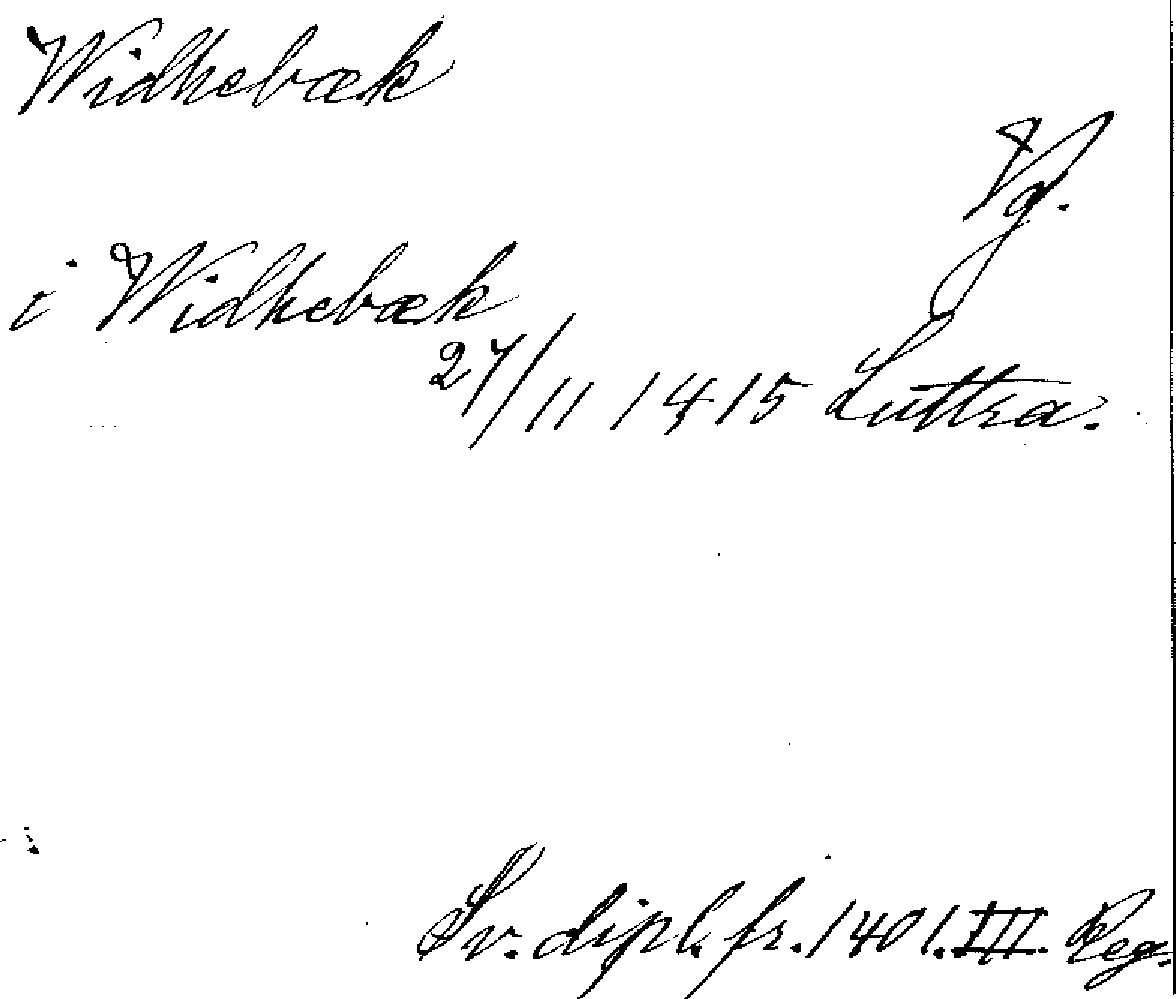 Widhebæk
Vg.
i Widhebæk
27/11 1415 Luttra.
Sv. dipl. fr. 1401. III. Reg.